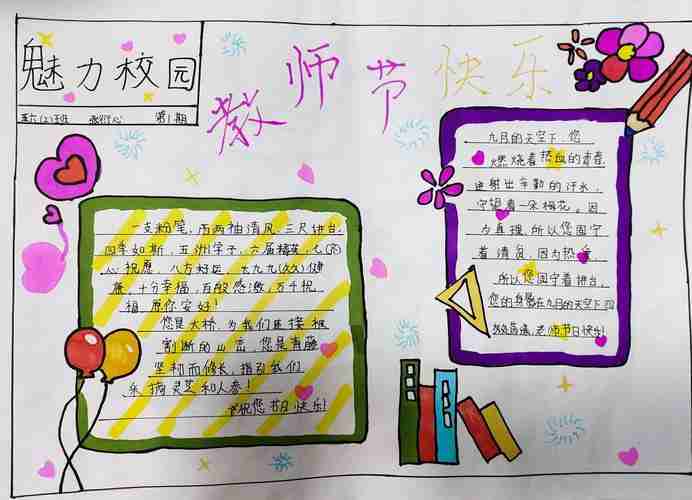 魅力校园
第1期
教师节快乐
一支粉笔,两袖清风,三尺讲台,
四季如斯,五洲学子,六届精英,七(齐)
心祝愿,八方好运,九九(久久)健
康,十分幸福,百般感激,万千祝
福,愿你安好!
您是大桥,为我们连接被
割断的山峦,您是青藤
坚韧而修长,指引我们
采摘灵芝和人参!
祝您节日快乐!
九月的天空下,您
燃烧着热血的青春
迸射出辛勤的汗水,
守望着一朵梅花。因
为真理,所以您固守
着清贫,因为热爱,
所以您固守着讲台,
您的身影在九月的天空下闪
老师节日快乐!